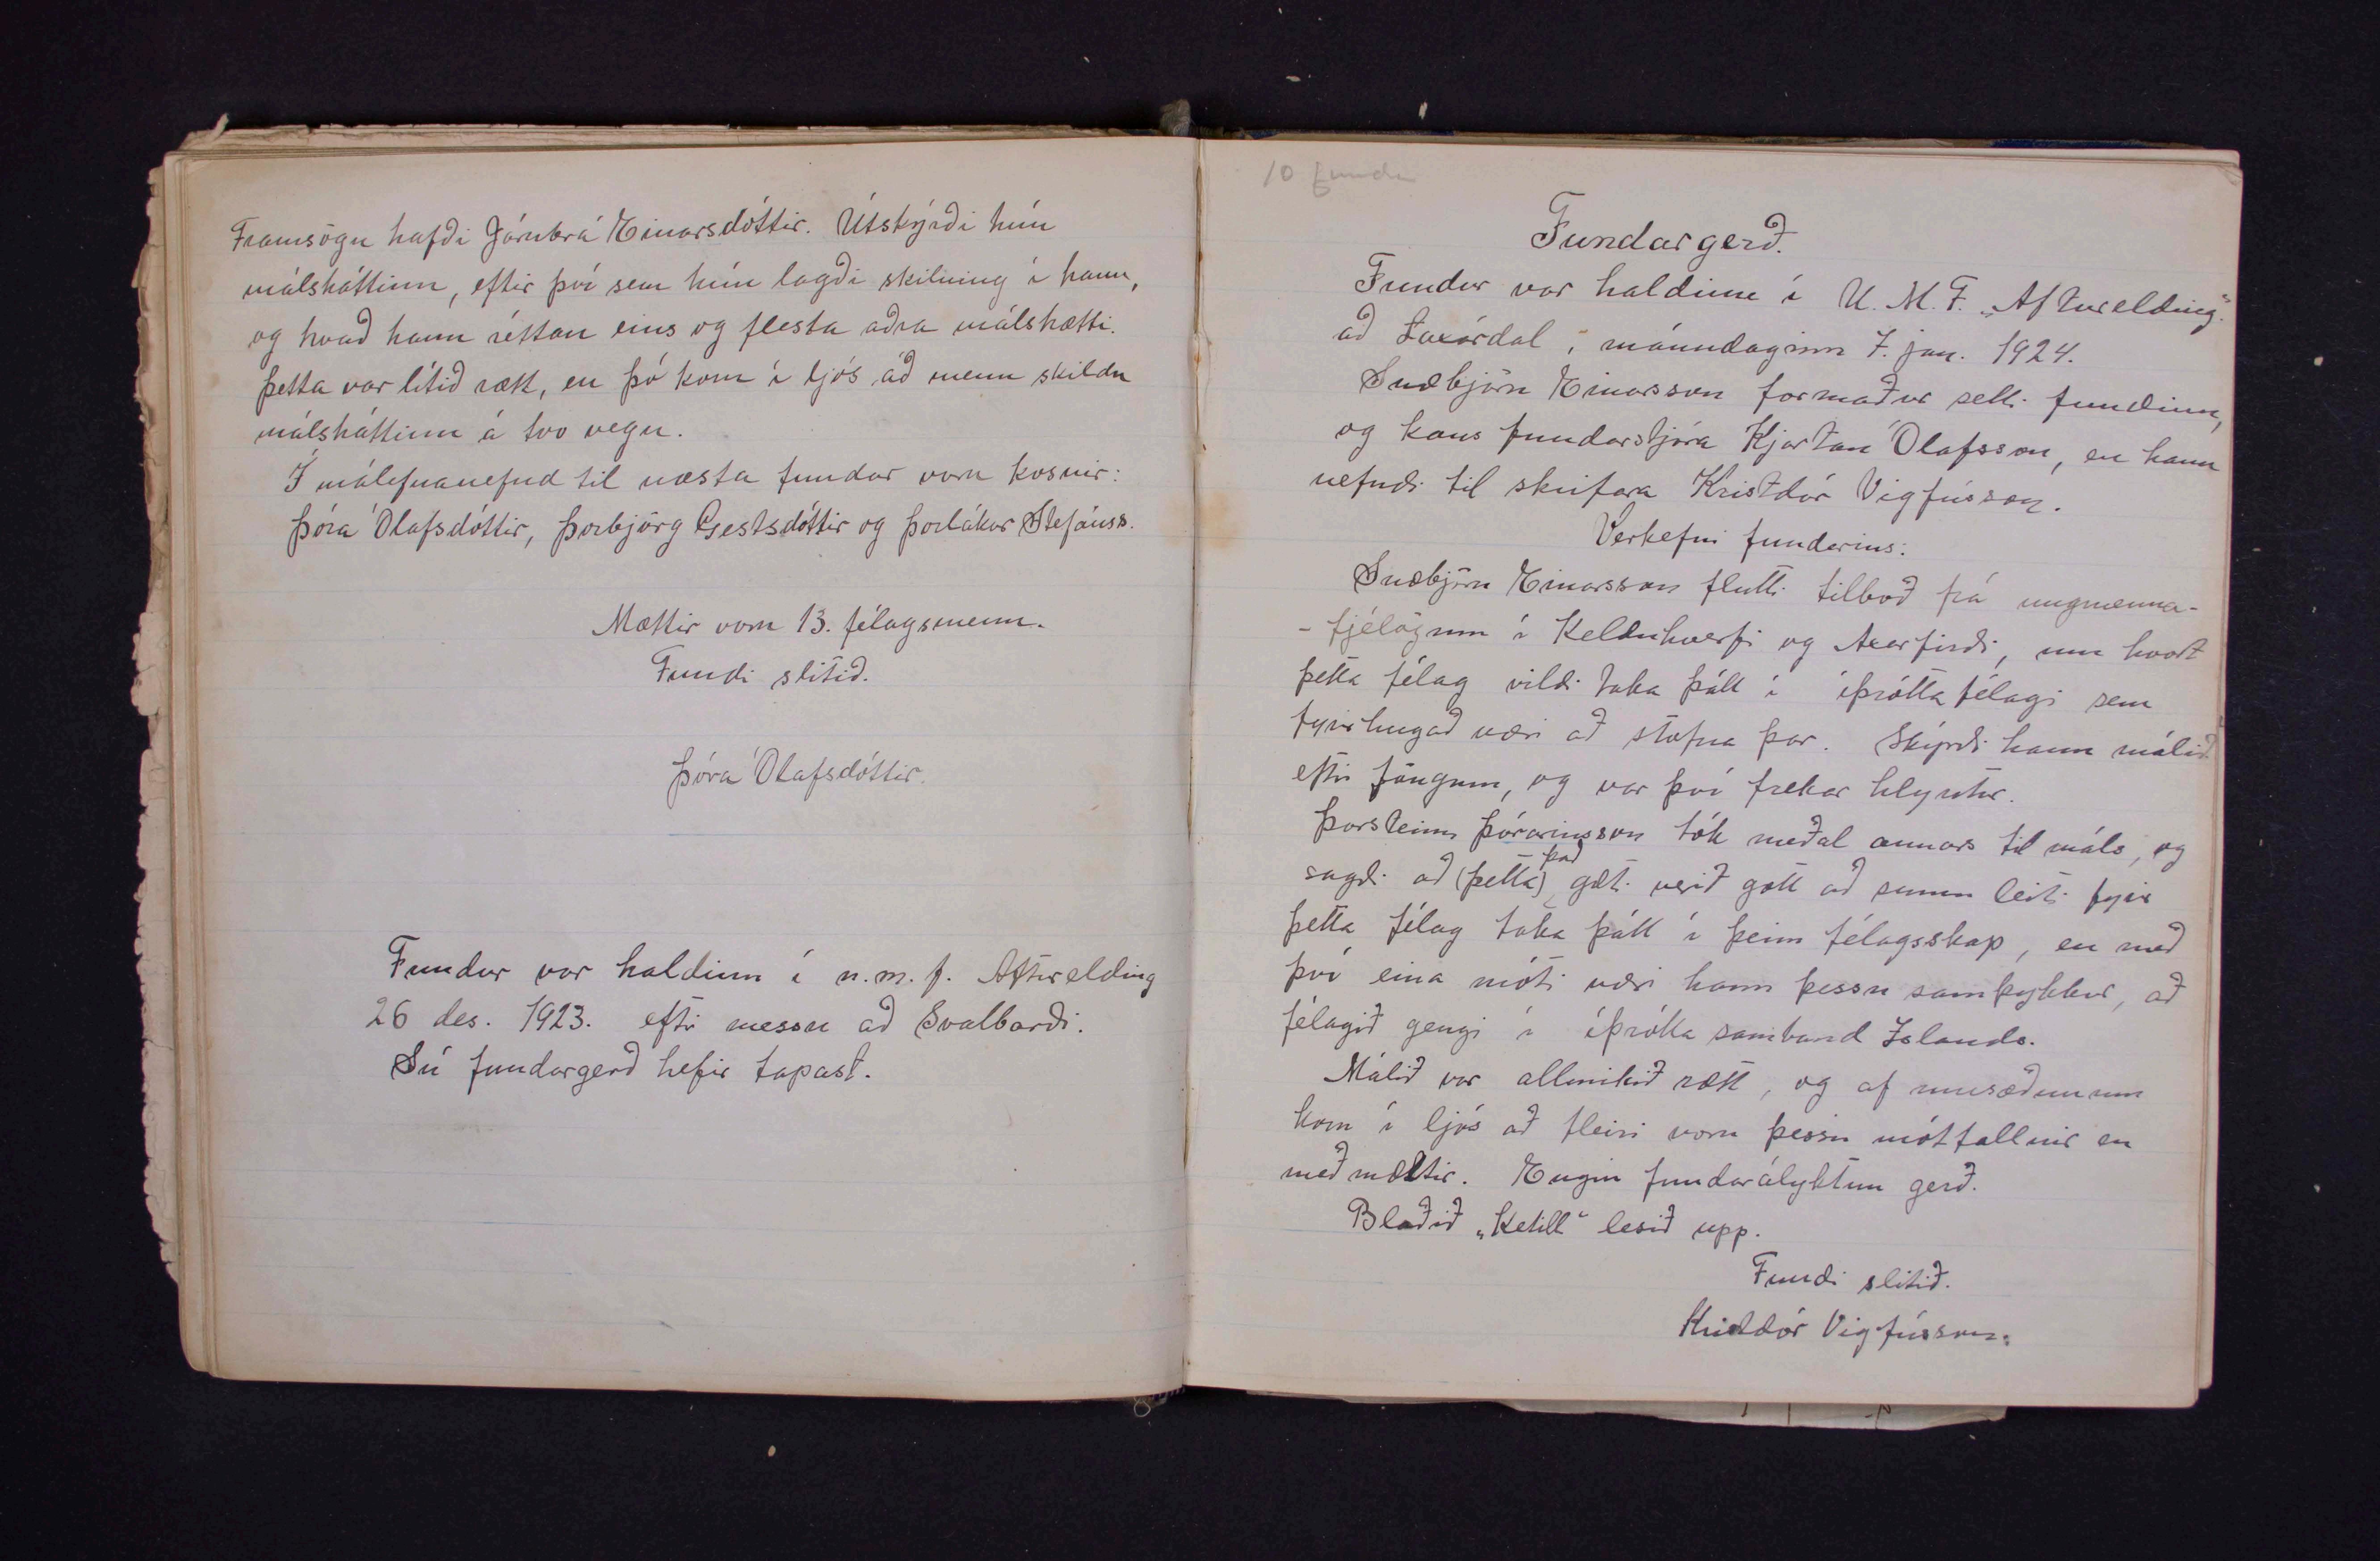 Framsögu hafði Járnbrá Einarsdóttir. Útskýrði hún
málsháttinn, eftir því sem hún lagði skilning í hann,
og hvað hann réttan eins og flesta aðra málshætti.
Þetta var lítið rætt, en þó kom í ljós að menn skildu
málsháttinn á tvo vegu.
Í málefnanefnd til næsta fundar voru kosnir:
Þóra Ólafsdóttir, Þorbjörg Gestsdóttir og Þorlákur Stefánss.
Mættir voru 13. félagsmenn.
Fundi slitið.
Þóra Ólafsdóttir.
Fundur var haldinn í u.m.f. Afturelding
26 des. 1923. eftir messu að Svalbarði.
Sú fundargerð hefir tapast.
10 fundur
Fundargerð.
Fundur var haldinn í U.M.F. „Afturelding“.
að Laxárdal, mánudaginn 7. jan. 1924.
Snæbjörn Einarsson formaður setti fundinn,
og kaus fundarstjóra Kjartan Ólafsson, en hann
nefndi til skrifara Kristdór Vigfússon.
Verkefni fundarins:
Snæbjörn Einarsson flutti tilboð frá ungmenna-
-fjélögum í Kelduhverfi og Axarfirði, um hvort
þetta félag vildi taka þátt í íþróttafélagi sem
fyrirhugað væri að stofna þar. Skýrði hann málið
eftir föngum, og var því frekar hlyntur.
Þorsteinn Þórarinsson tók meðal annars til máls, og
sagði að (þetta) það gæti verið gott að sumu leiti fyrir
þetta félag taka þátt í þeim félagsskap, en með
því eina móti væri hann þessu samþykkur, að
félagið gengi í íþróttasamband Íslands.
Málið var allmikið rætt, og af umræðunum
kom í ljós að fleiri voru þessu mótfallnir en
meðmæltir. Engin fundarályktun gerð.
Blaðið „Ketill“ lesið upp.
Fundi slitið.
Kristdór Vigfússon.